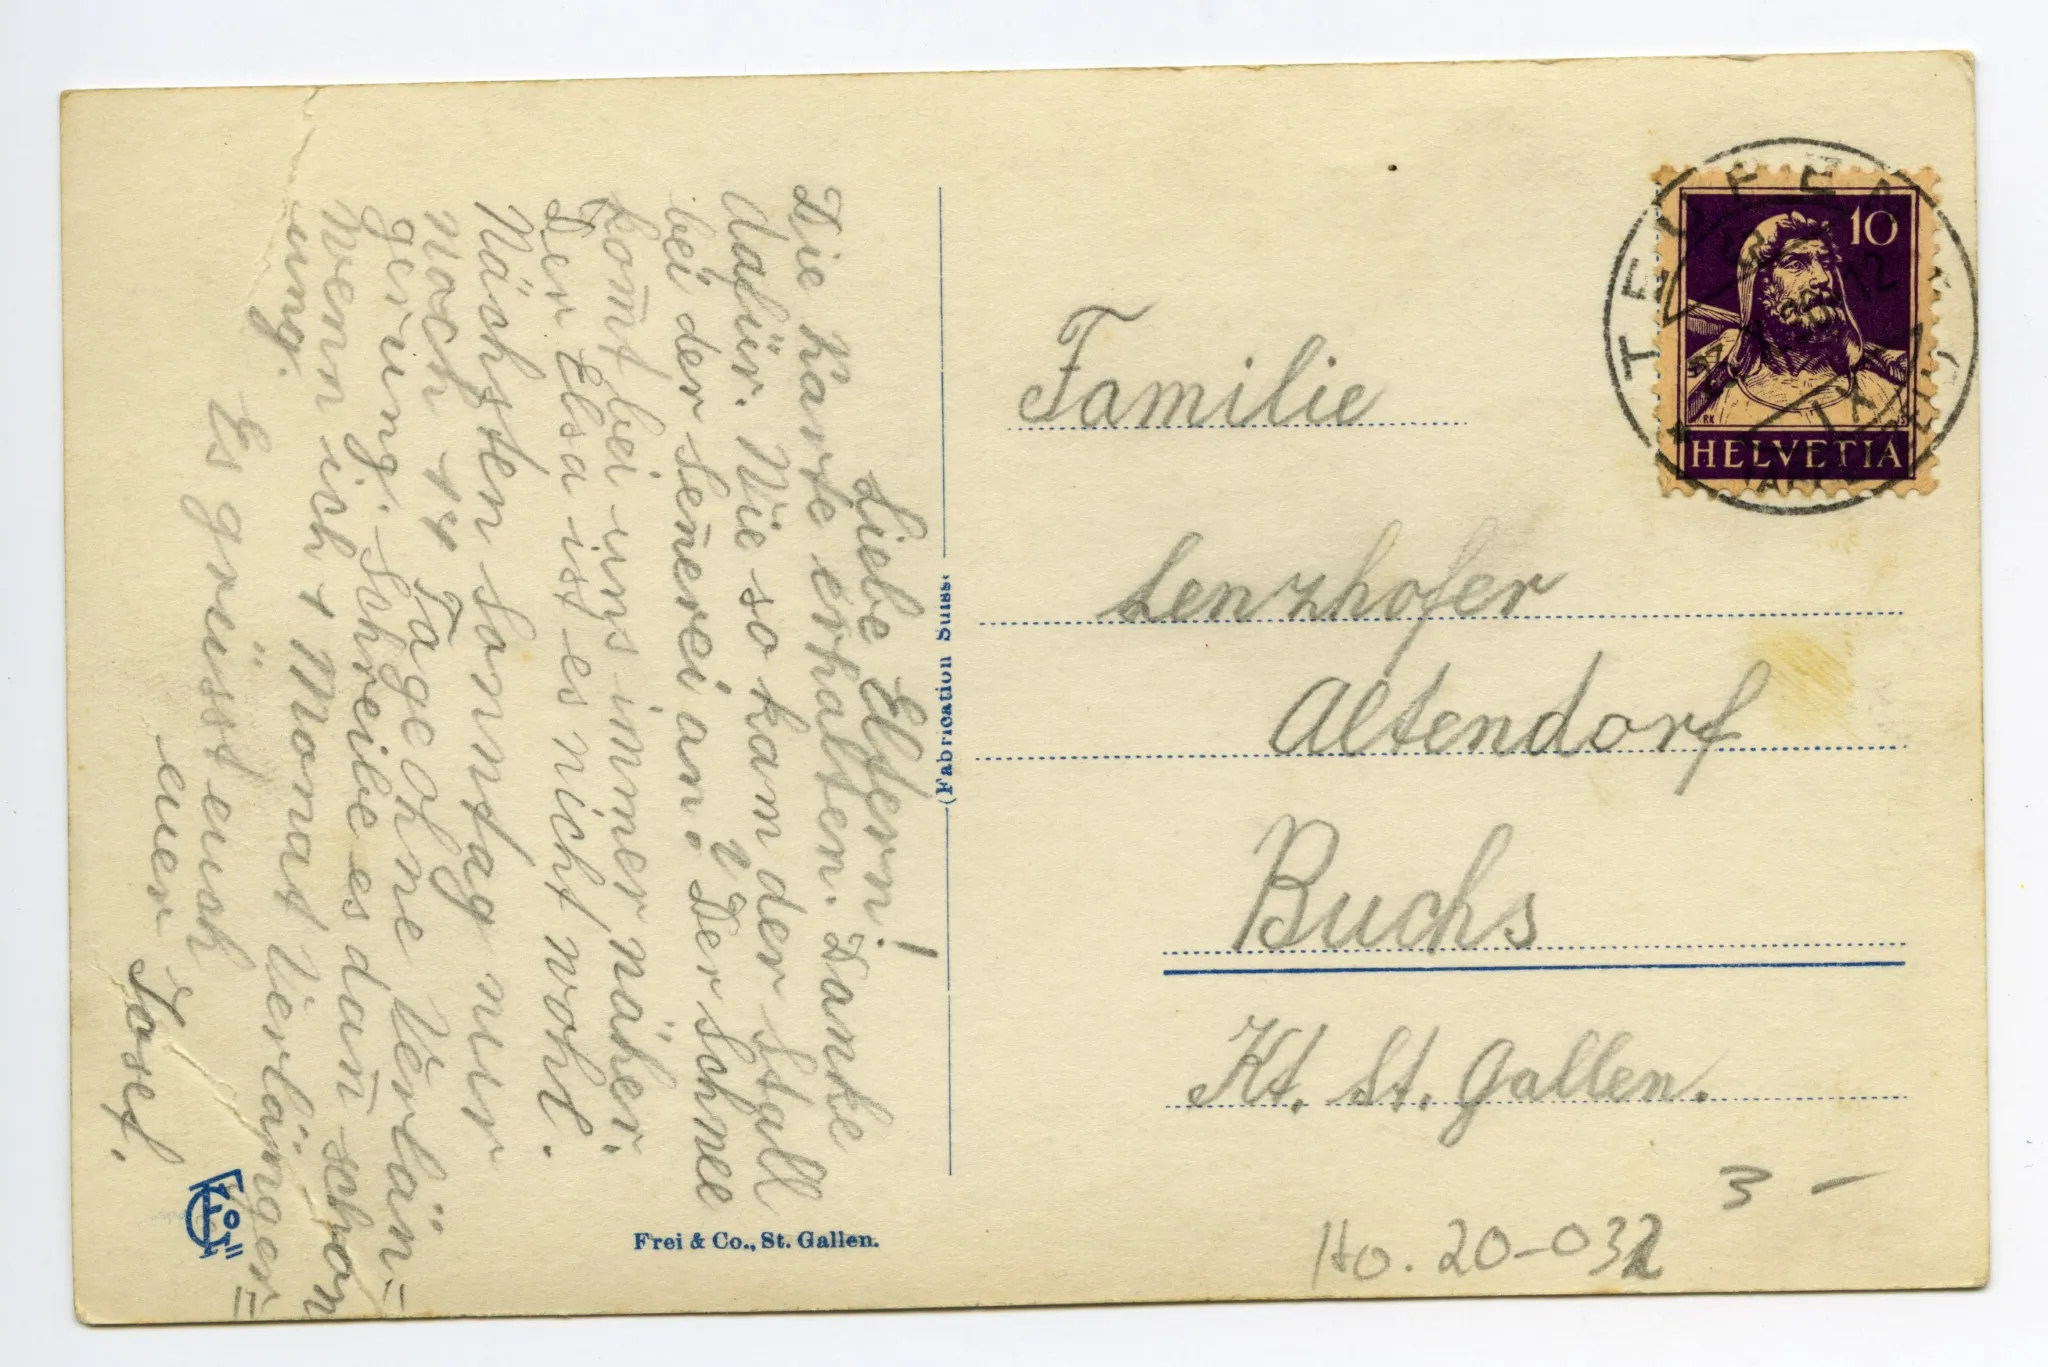 Liebe Eltern!
Die Karte erhalten. Danke
dafür. Wie so kam der Stall
bei der Señerei an? Der Schnee
kom̄t bei uns immer näher.
Der Elsa ist es nicht wohl.
Nächsten Sonntag nur
noch 14 Tage ohne Verlän=
gerung. Schreibe es dan̄ schon
wenn ich 1 Monat Verlänger=
ung.
Es grüsst euch
euer Josef.
Frei & Co., St. Gallen.
(Fabrication Suisse
Familie
Lenzhofer
Altendorf
Buchs
Kt. St. Gallen.
3 –
Ho. 20-032
10
HELVETIA